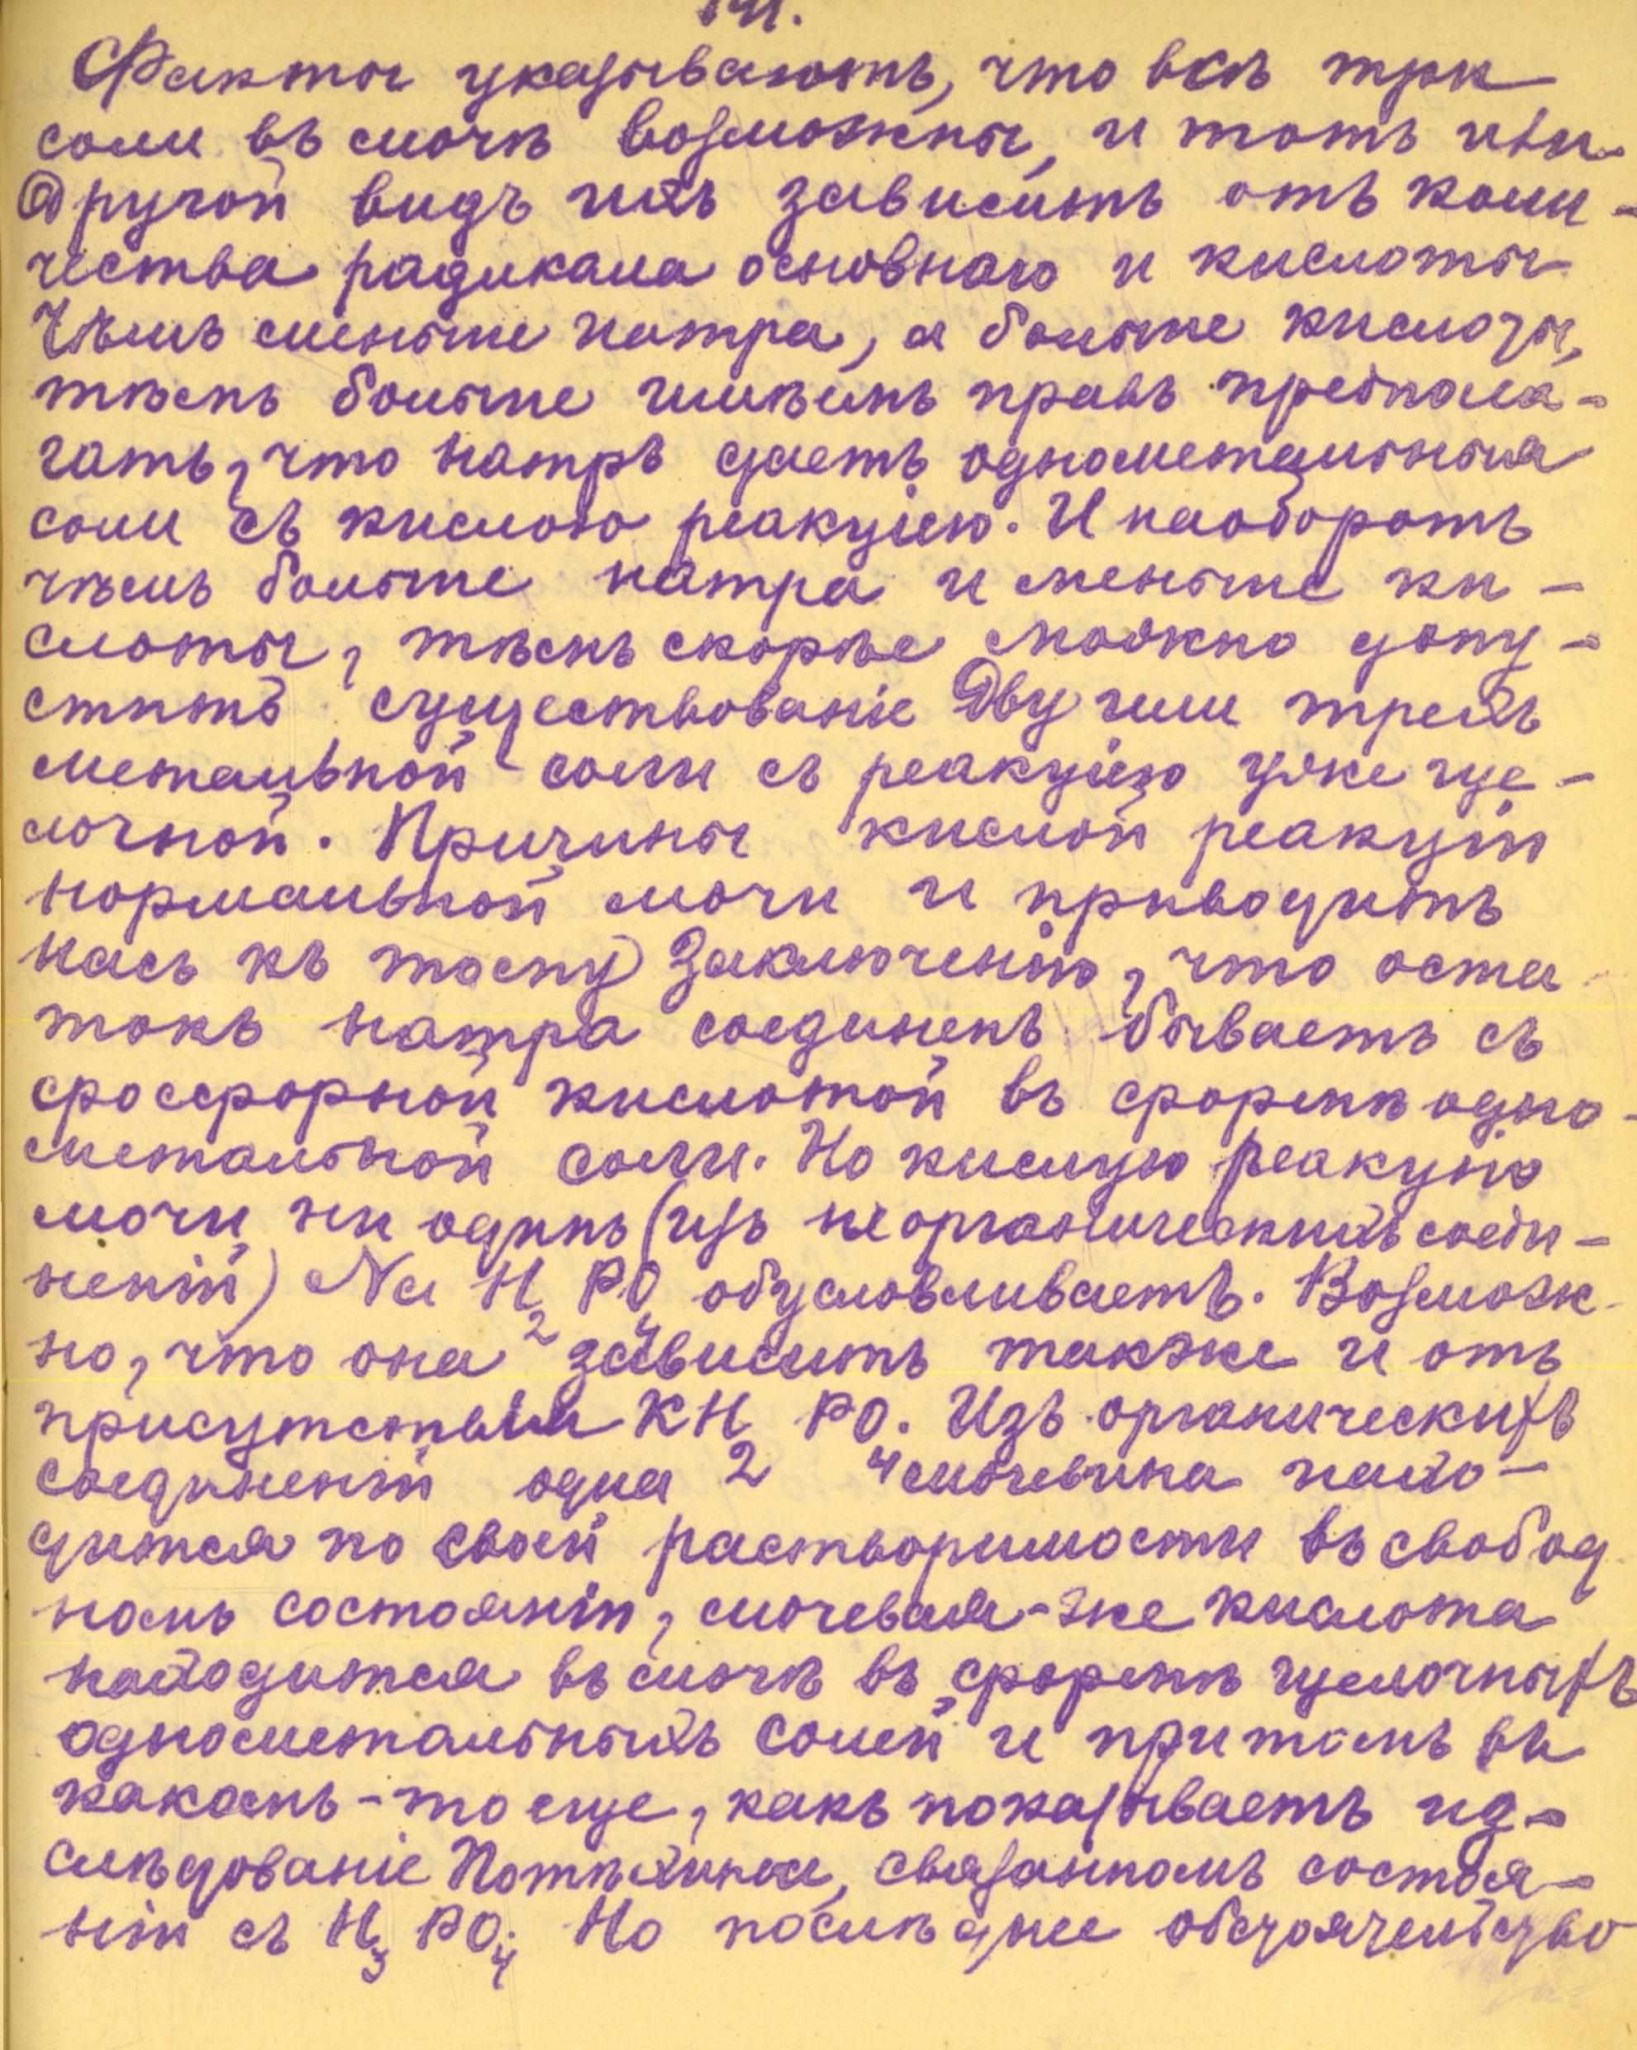 Факты указываютъ, что всѣ три
соли въ мочѣ возможны, и тотъ или
другой видъ ихъ зависитъ отъ коли-
чества радикала основнаго и кислоты
Чѣмъ меньше натра, а больше кислоты,
тѣмъ больше имѣемъ правъ предпола-
гать, что натръ даетъ однометальныя
соли съ кислою реакціею. И наоборотъ
чѣмъ больше натра и меньше ки-
слоты, тѣмъ скорѣе можно допу-
стить существованіе дву или трехъ
метальной соли съ реакціею уже ще-
лочной. Причины кислой реакціи
нормальной мочи и приводитъ
насъ къ тому заключенію, что оста
токъ натра соединенъ бываетъ съ
фосфорной кислотой въ формѣ одно-
метальной соли. Но кислую реакцію
мочи не одинъ (изъ неорганическихъ соеди-
неній) Na H2 PO4 обусловливаетъ. Возмож
но, что она зависитъ также и отъ
присутствія KH2 PO4. Изъ органическихъ
соединеній одна мочевина нахо-
дится по своей растворимости въ свобод
номъ состояніи, мочевая-же кислота
находится въ мочѣ въ формѣ щелочныхъ
однометальныхъ солей и притомъ въ
какомъ-то еще, какъ показываетъ из-
слѣдованіе Потѣхина, связанномъ состоя-
ніи съ H3 PO4. Но послѣднее обстоятельство